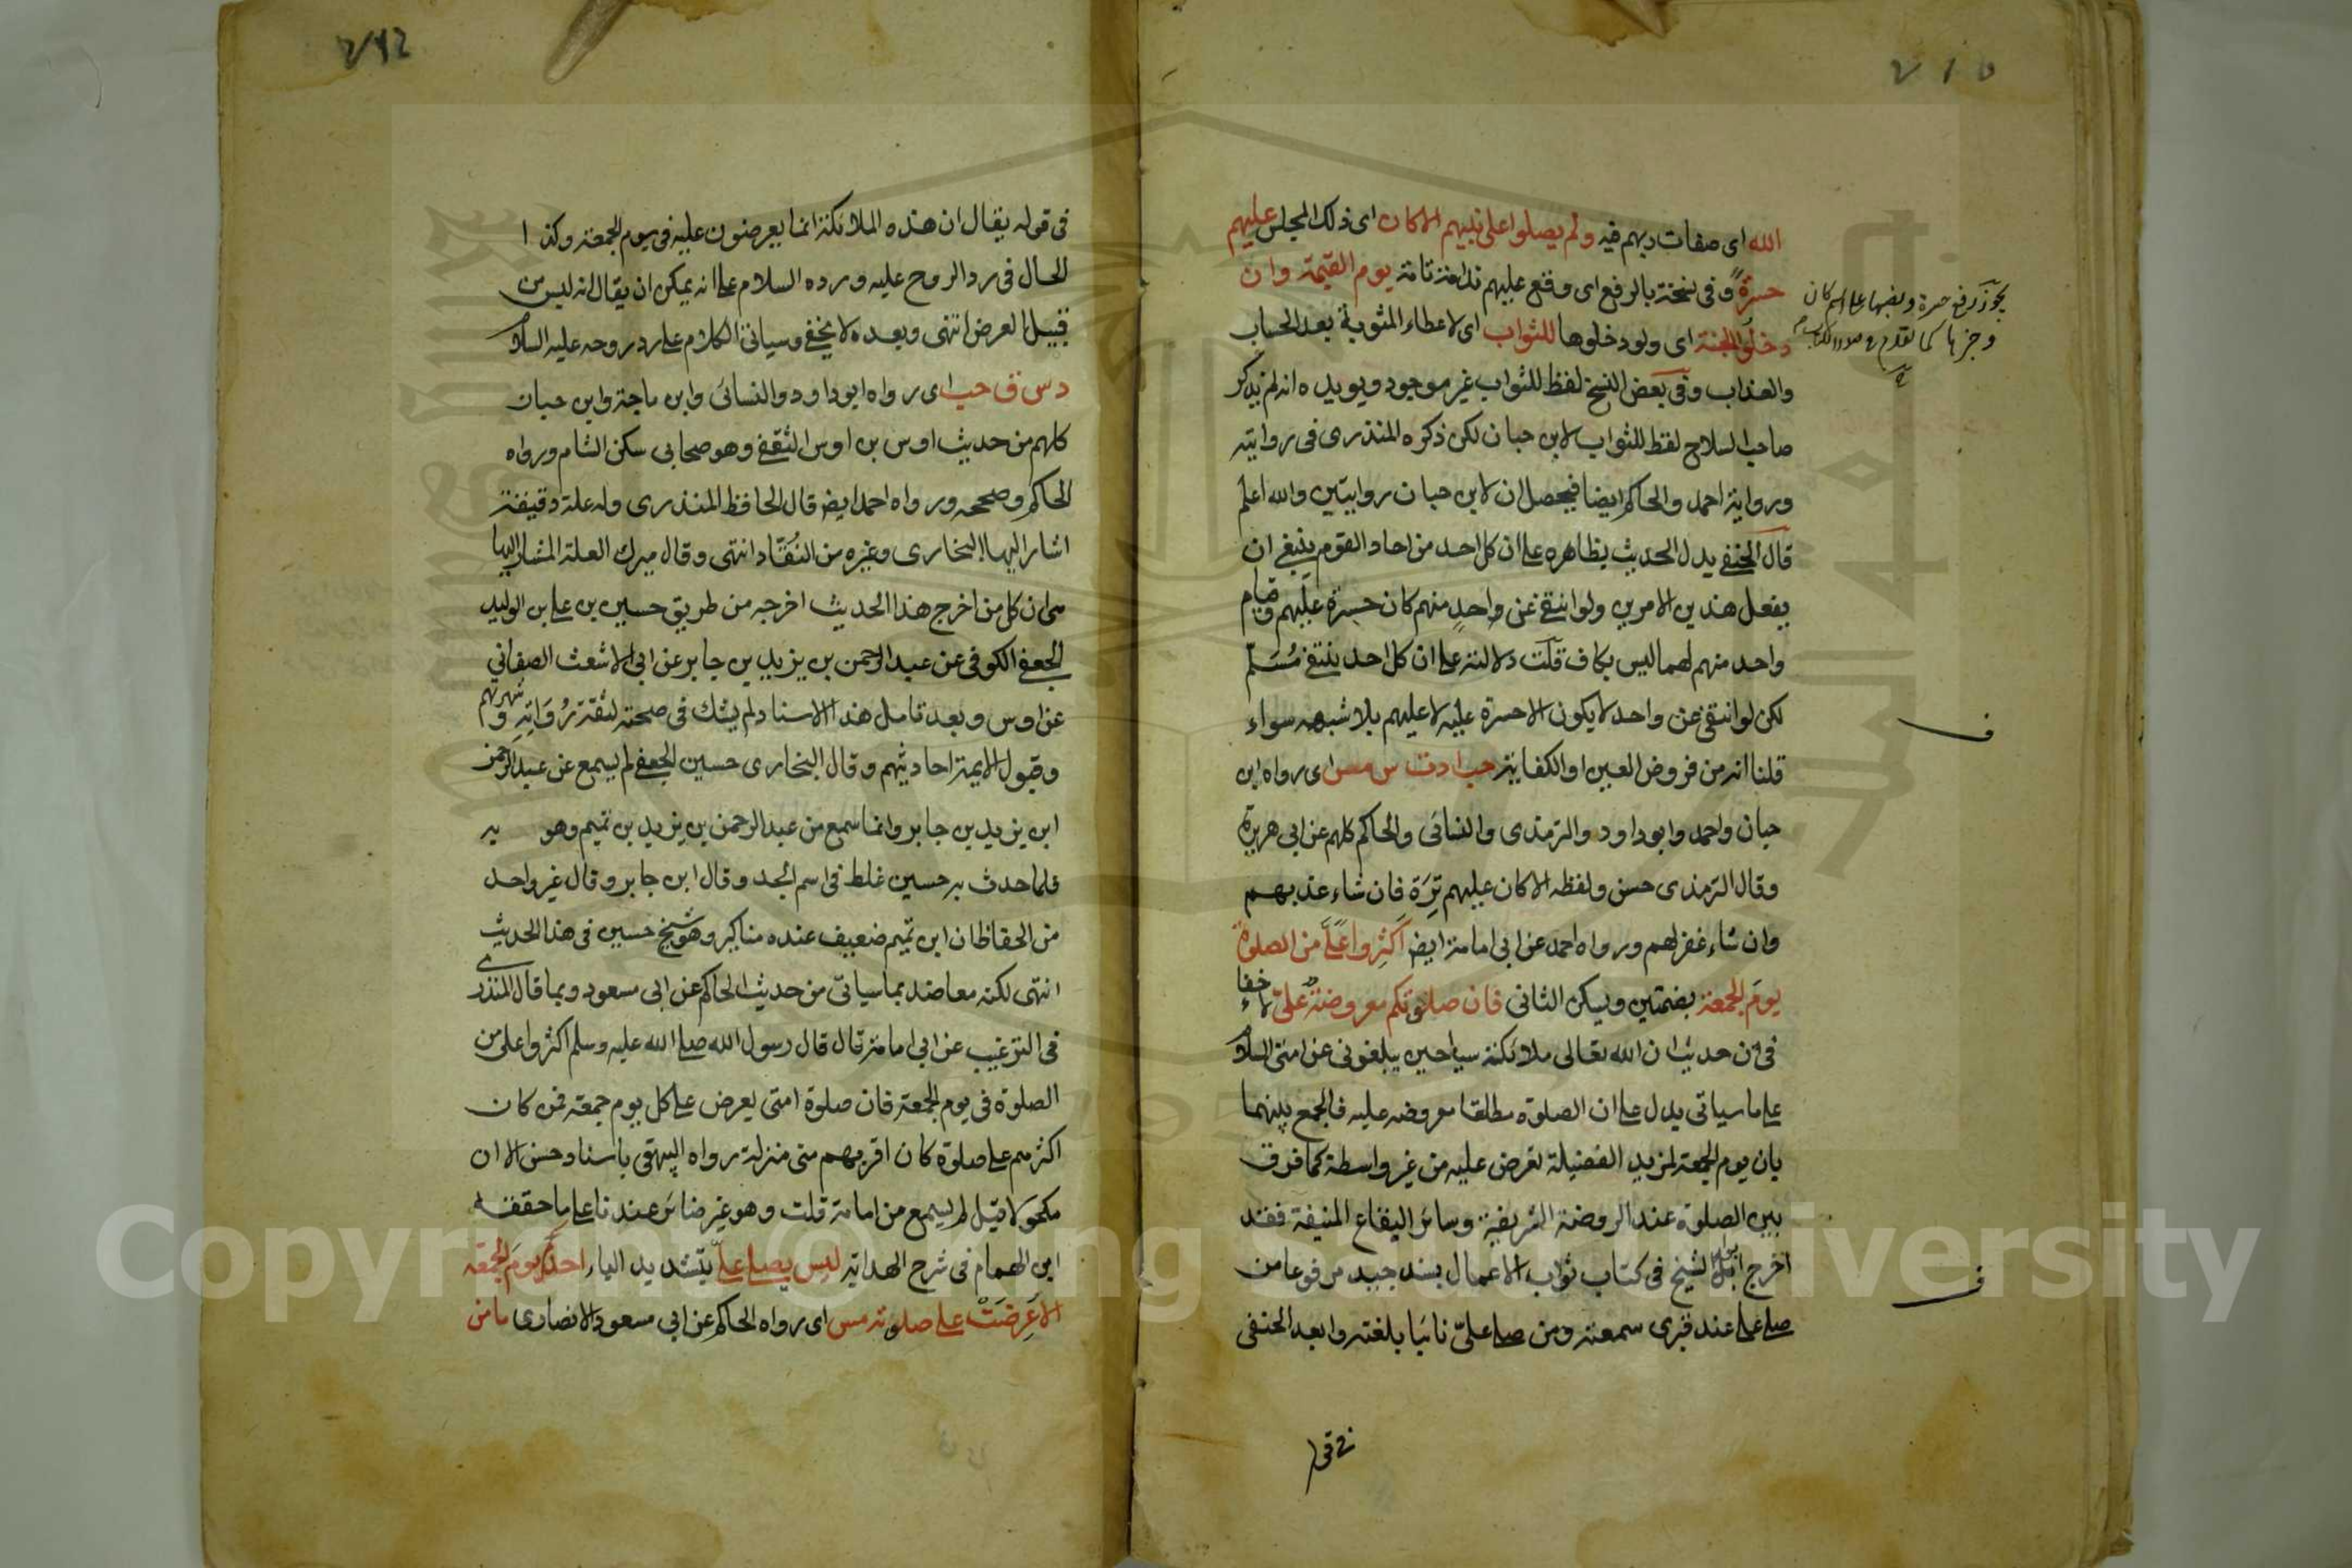 الله اى صفات ربهم فيه ولم يصلوا على نبيهم الا كان اى ذلك المجلس عليهم
حسرةً وفى نسخة بالرفع اى وقع عليهم ندامة تامة يوم القيمة وان
دخلوا الجنة اى ولو دخلوها للثواب اى لاعطاء المثوبة بعد الحساب
والعذاب وفى بعض النسخ لفظ للثواب غير موجود ويويده انه لم يذكر
صاحب السلاح لفظ للثواب لابن حبان لكن ذكره المنذرى فى روايته
ورواية احمد والحاكم ايضا فيحصل ان لابن حبان روايتين والله اعلم
قال الحنفى يدل الحديث بظاهره على ان كل احد من احاد القوم ينبغى ان
يفعل هذين الامرين ولو انتقى عن واحد منهم كان حسرة عليهم وقيام
واحد منهم لهما ليس بكاف قلت دلالته على ان كل احد ينتفى مُسَلّم
لكن لو انتقى عن واحد لا يكون الا حسرة عليه لا عليهم بلا شبهه سواء
قلنا انه من فروض العين او الكفاية حب ا د ت س مس اى رواه ابن
حبان واحمد وابوداود والترمذى والنسائى والحاكم كلهم عن ابى هريرة
وقال الترمذى حسن ولفظه الا كان عليهم تِرَة فان شاء عذبهم
وان شاء غفر لهم ورواه احمد عن ابى امامة ايض اَكثِروا عَلَىَّ من الصلوة
يومَ الجمعة بضمتين ويسكن الثانى فان صلوتكم معروضة علىّ لا خفاء
فى ان حديث ان الله تعالى ملائكة سياحين يبلغونى عن امتى السلام
على ما سياتى يدل على ان الصلوة مطلقا معروضه عليه فالجمع بينهما
بان يوم الجمعة لمزيد الفضيلة تعرض عليه من غير واسطة كما فرق
بين الصلوة عند الروضة الشريفة وسائر البقاع المنيفة فقد
اخرج ابو الشيخ فى كتاب ثواب الاعمال بسند جيد مرفوعا من
صلى على عند قبرى سمعته ومن صلى علىّ نائيا بلغته وابعد الحنفى
فى قوله
يجوز رفع حسرة ونصبها على اسم كان
وخبرها كما تقدم فى صدر الكتاب
ف
ف
فى قوله يقال ان هذه الملائكة انما يعرضون عليه فى يوم الجمعة وكذا
الحال فى رد الروح عليه ورده السلام على انه يمكن ان يقال انه ليس من
قبيل العرض انتهى وبعده لا يخفى وسياتى الكلام على رد روحه عليه السلام
د س ق حب اى رواه ابو داود والنسائى وابن ماجة وابن حبان
كلهم من حديث اوس بن اوس الثقفى وهو صحابى سكن الشام ورواه
الحاكم وصححه ورواه احمد ايض قال الحافظ المنذرى وله علة دقيقة
اشار اليها البخارى وغيره من النُقّاد انتهى وقال ميرك العلة المشار اليها
هى ان كل من اخرج هذا الحديث اخرجه من طريق حسين بن على بن الوليد
الجعفى الكوفى عن عبد الرحمن بن يزيد بن جابر عن ابى الاشعث الصنعانى
عن اوس وبعد تامل هذا الاسناد لم يشك فى صحته لثقة رُوَاتِهِ وشهرتهم
وقبول الايمة احاديثهم وقال البخارى حسين الجعفى لم يسمع عن عبد الرحمن
ابن يزيد بن جابر وانما سمع من عبد الرحمن بن يزيد بن تميم وهو به
فلما حدث به حسين غلط فى اسم الجد وقال ابن جابر وقال غير واحد
من الحفاظ ان ابن تميم ضعيف عنده مناكير وهو شيخ حسين فى هذا الحديث
انتهى لكنه معاضد بما سياتى من حديث الحاكم عن ابى مسعود وبما قال المنذرى
فى الترغيب عن ابى امامة قال قال رسول الله صلى الله عليه وسلم اكثروا على من
الصلوة فى يوم الجمعة فان صلوة امتى يعرض على كل يوم جمعة فمن كان
اكثرهم على صلوة كان اقربهم منى منزلة رواه البيهقى باسناد حسن الا ان
مكحولا قيل لم يسمع من امامة قلت وهو غير ضائر عندنا على ما حققه
ابن الهمام فى شرح الهداية ليس يصلى علىّ بتشديد الياء احدٌ يومَ الجمعة
الا عُرِضَتْ على صلوته مس اى رواه الحاكم عن ابى مسعود الانصارى ما من